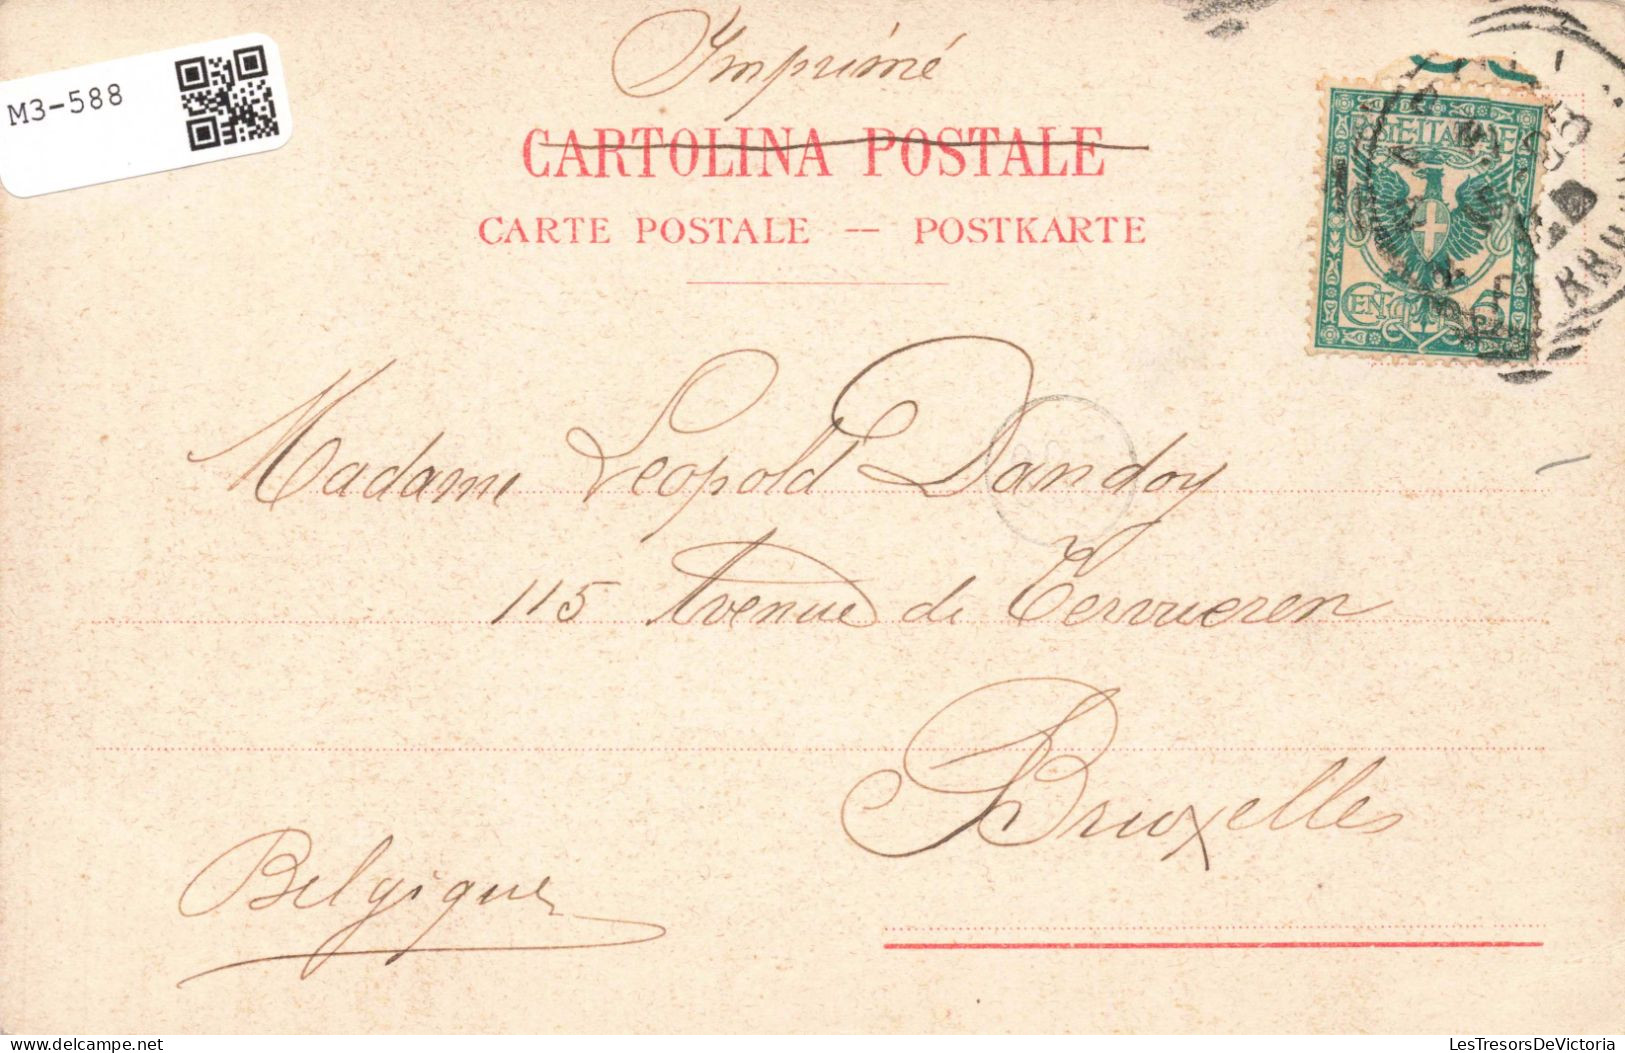 M3-588
Imprimé
CARTOLINA POSTALE
CARTE POSTALE -- POSTKARTE
POSTE ITALIANE
Madame Leopold Dandoy
115 Avenue de Tervueren
Bruxelles
Belgique
delcampe.net
LesTresorsDeVictoria